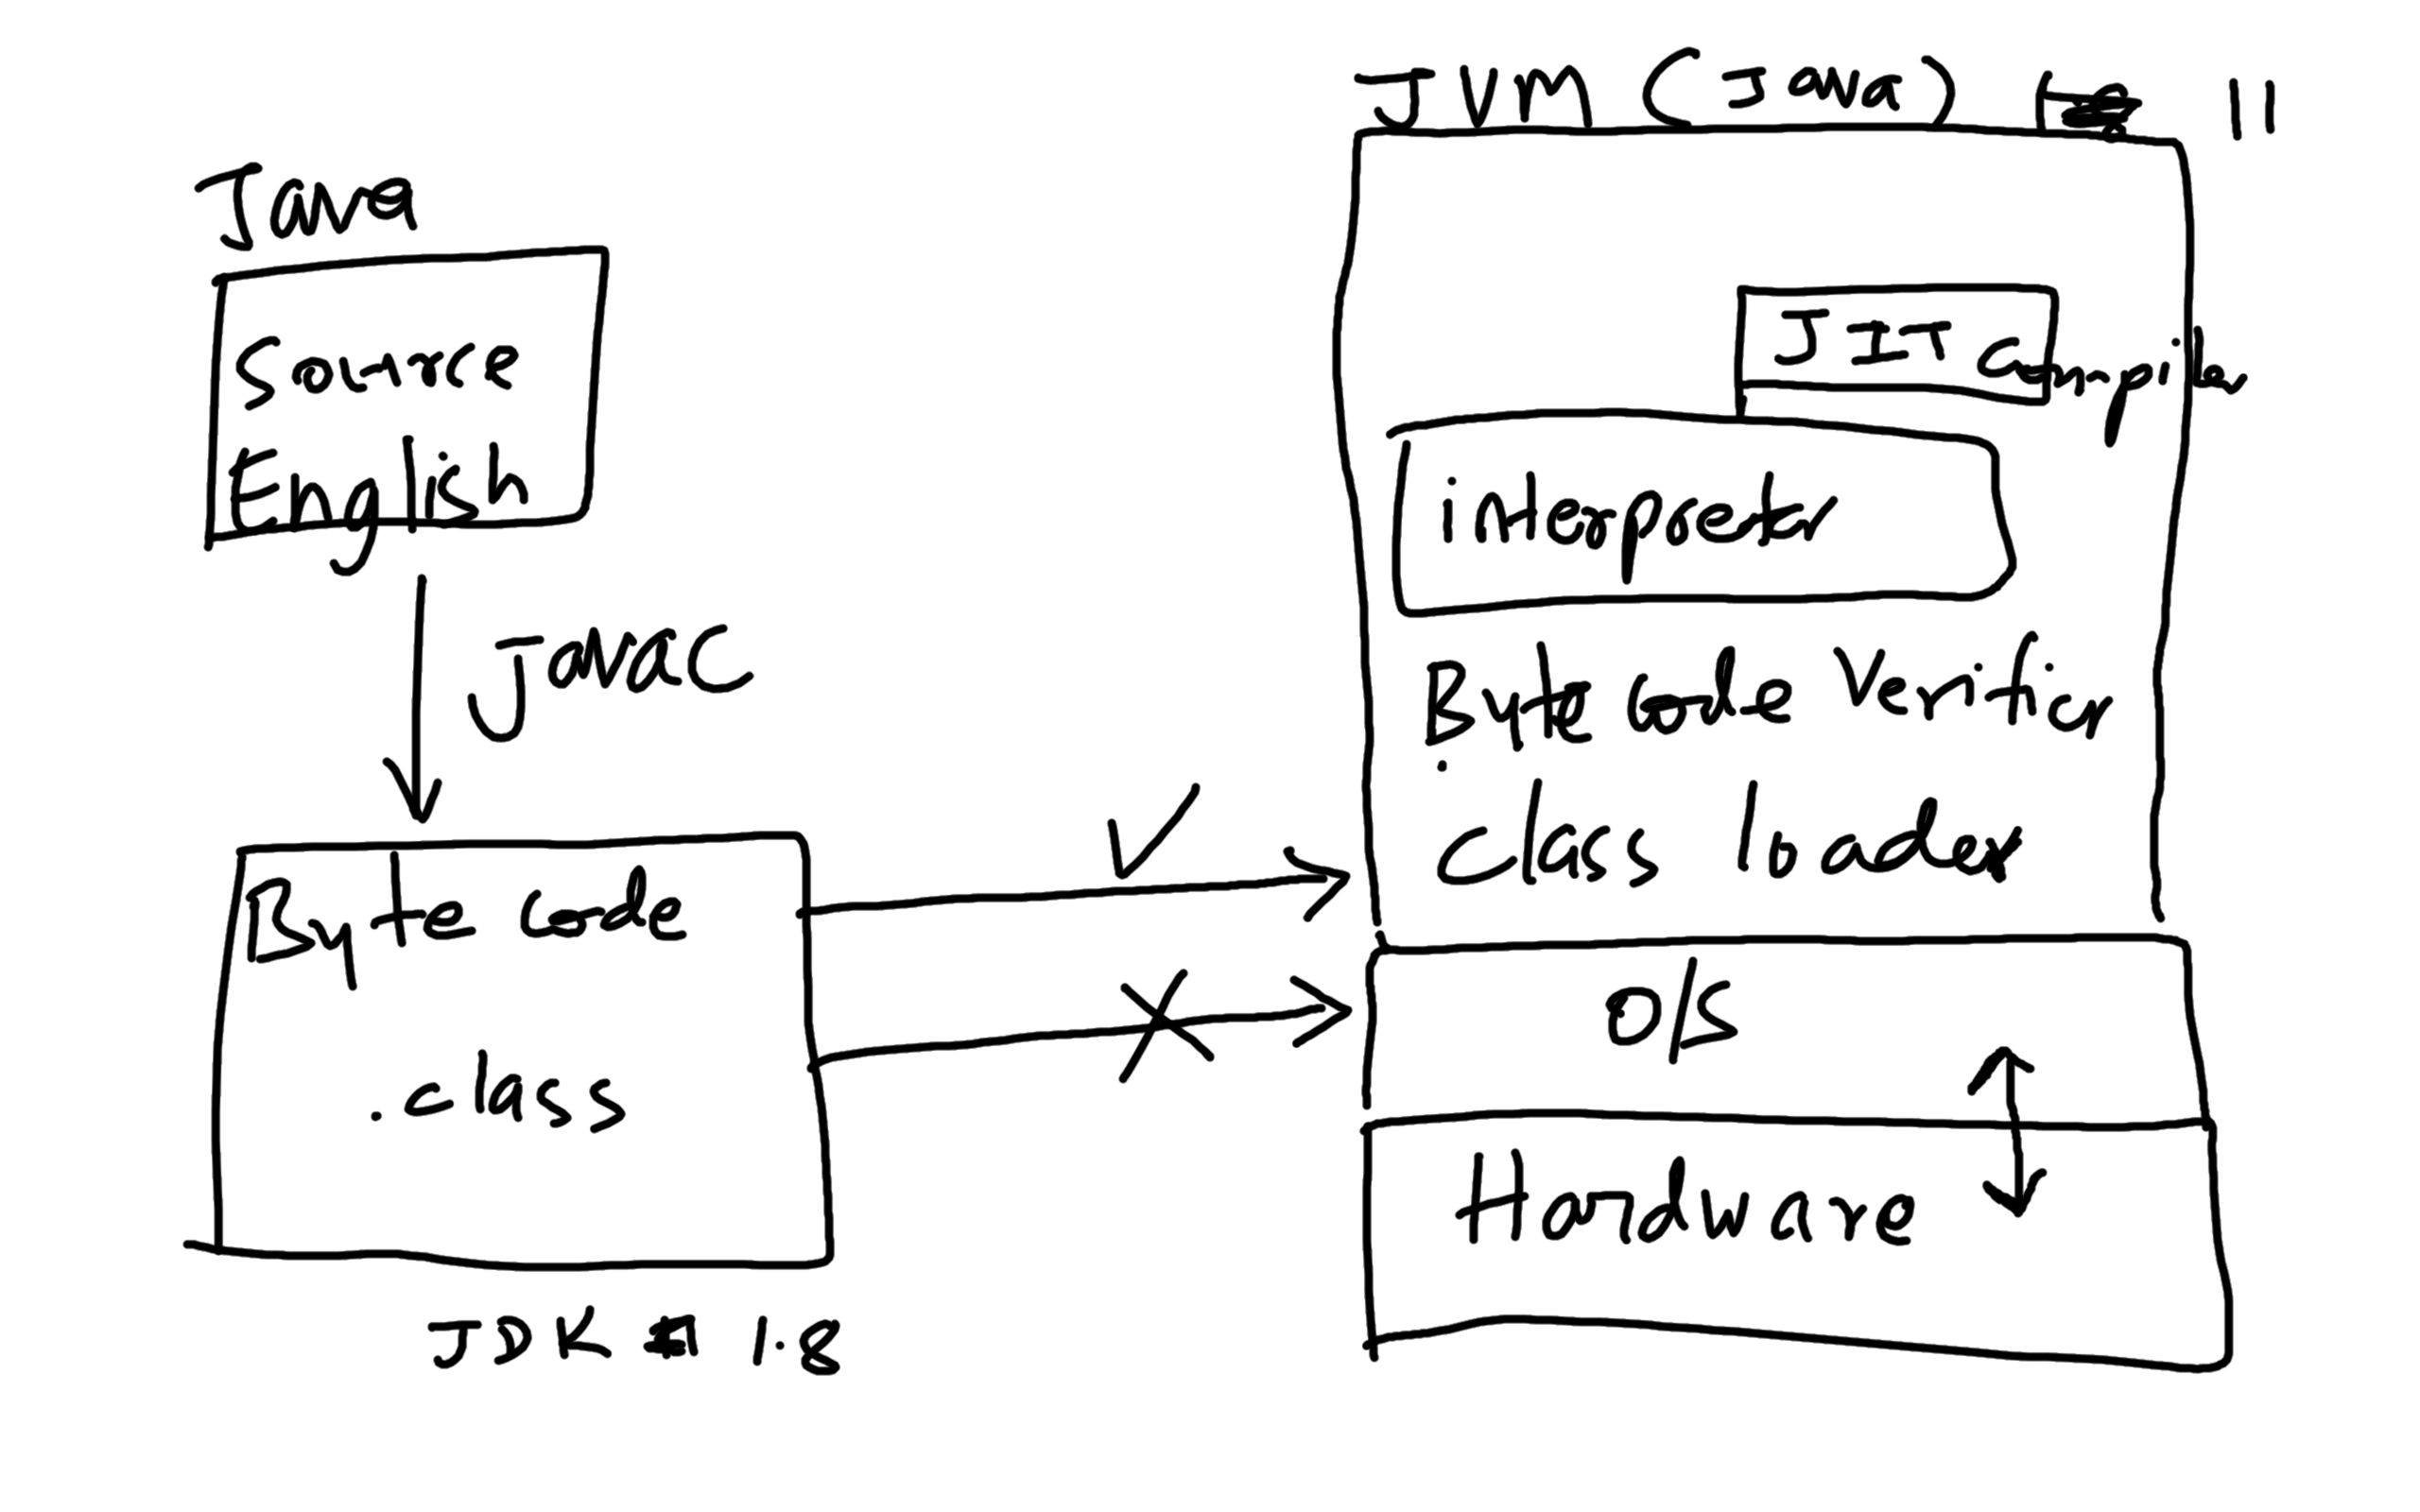 Java
Source
English
Javac
Byte code
.class
JDK 1.8
JVM (Java) 11
JIT Compiler
interpreter
Byte code Verifier
class loader
O/S
Hardware